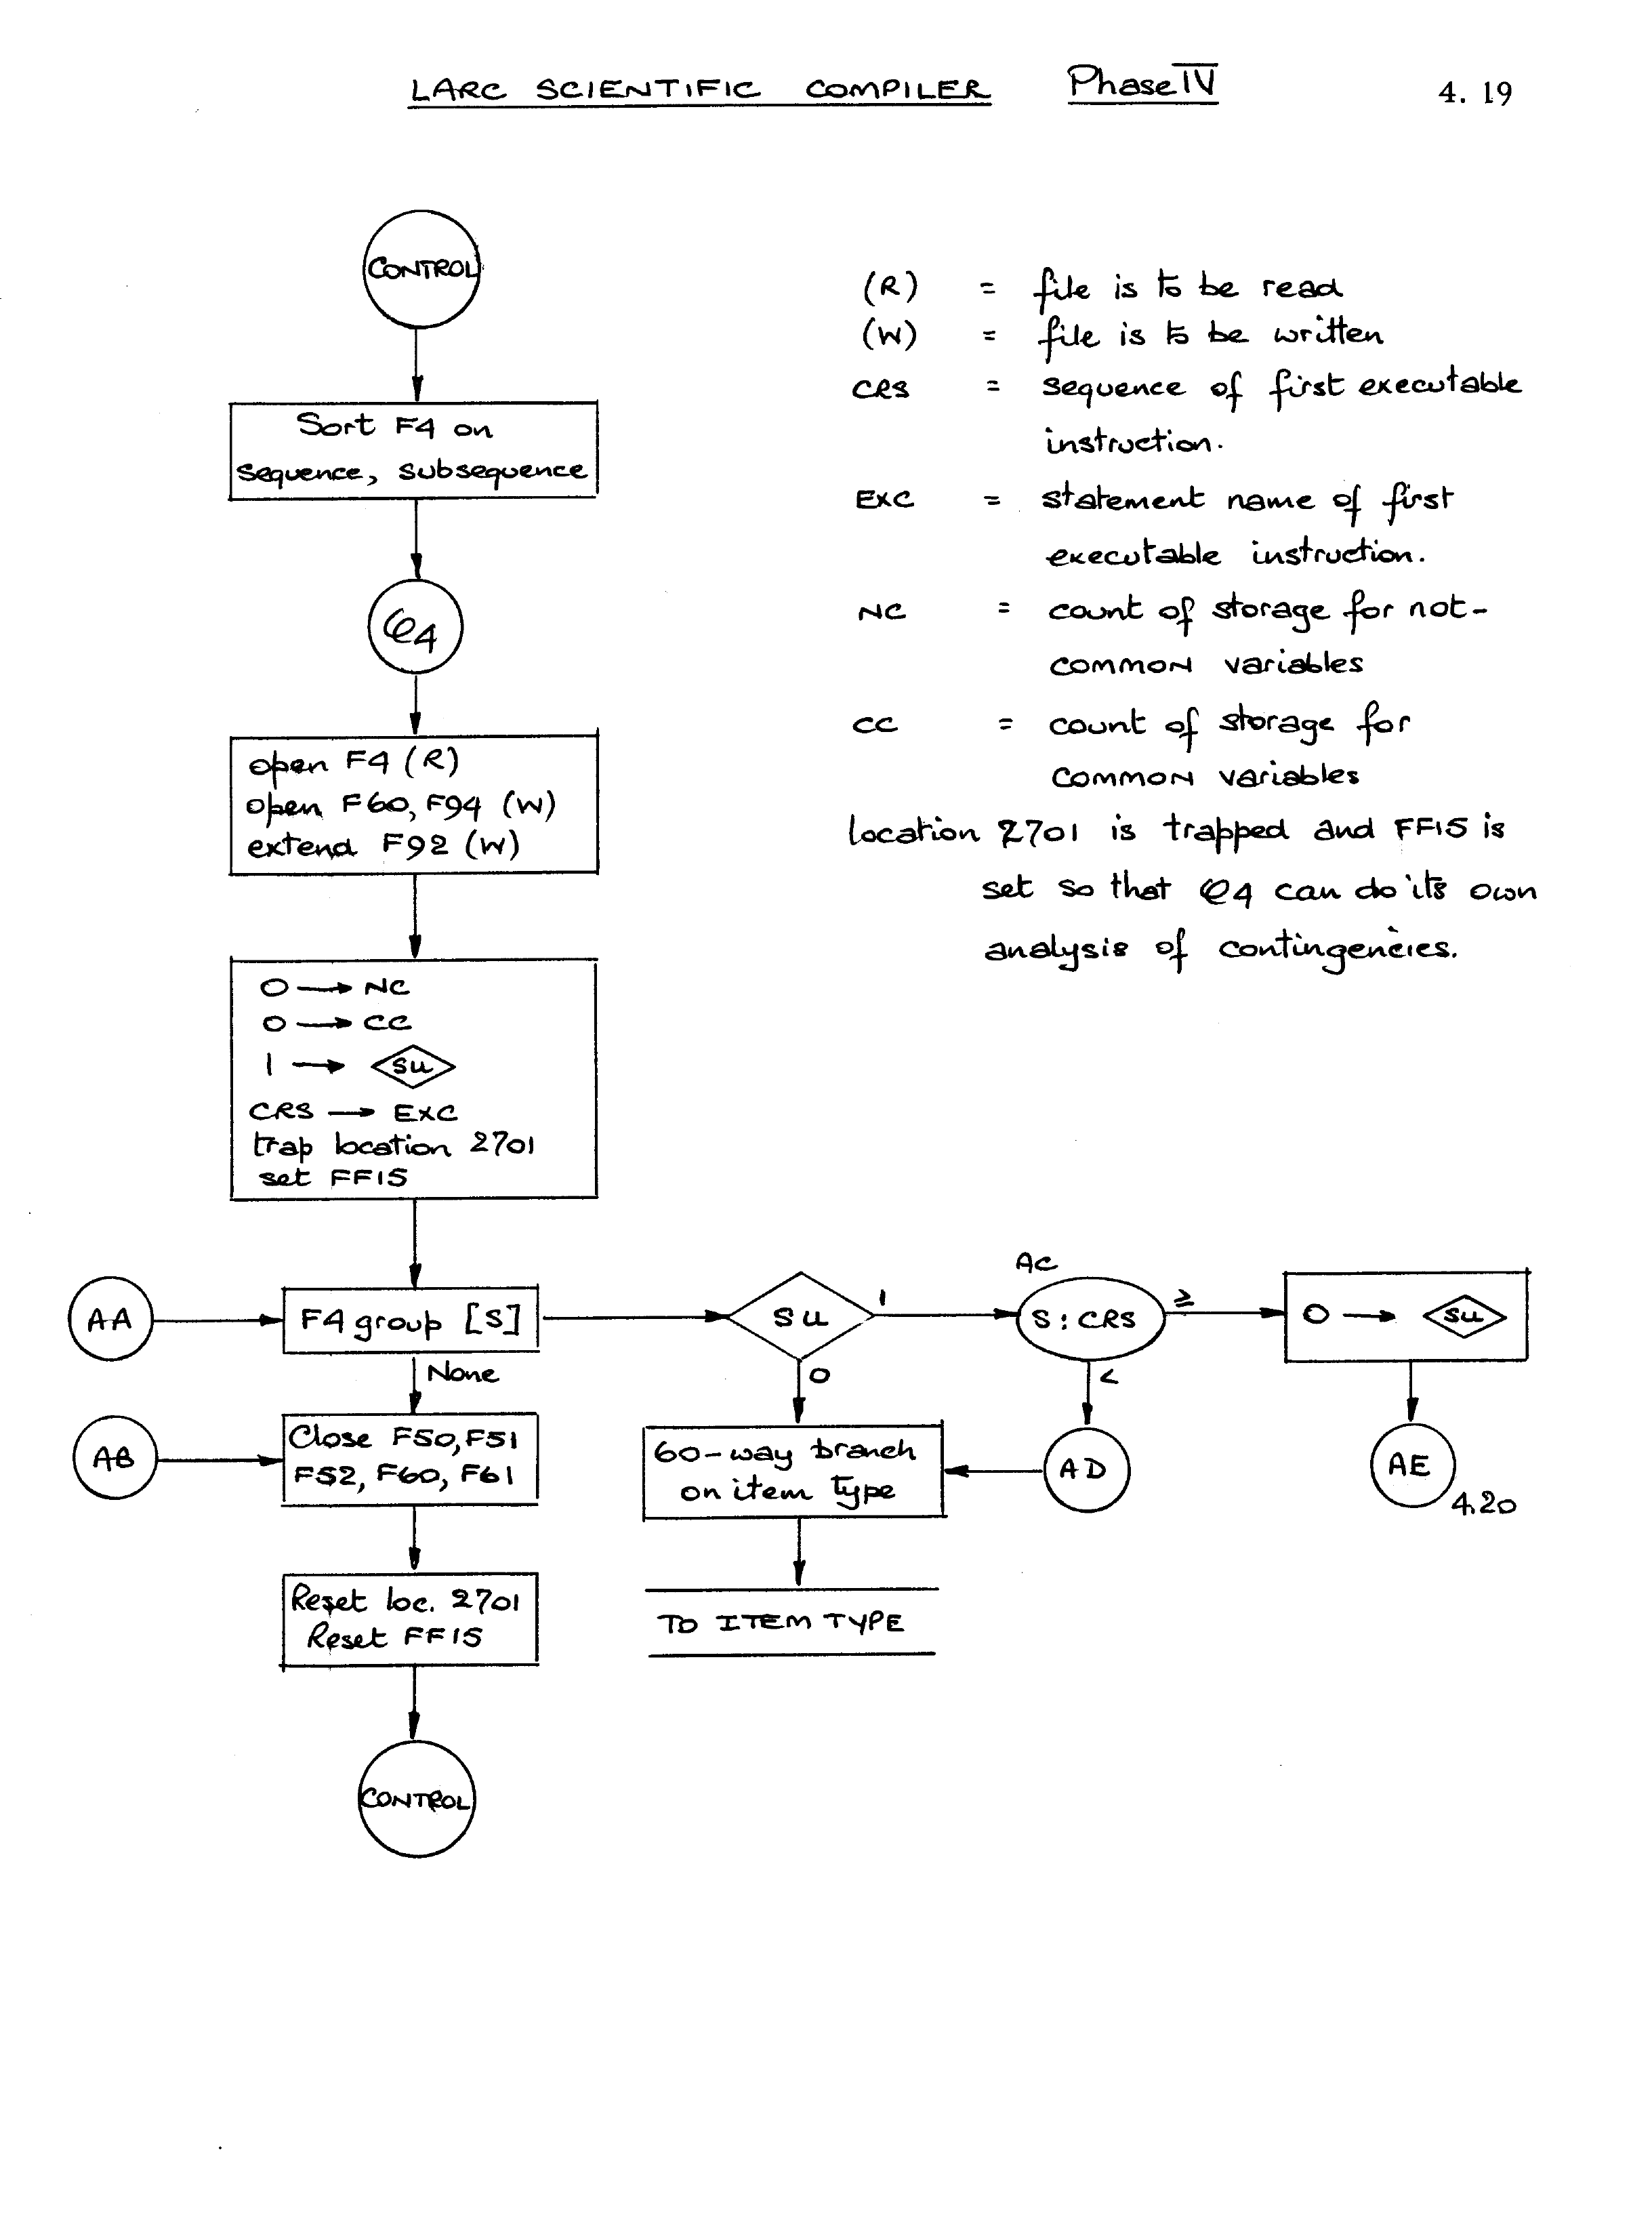 LARC SCIENTIFIC COMPILER Phase IV 4. 19
CONTROL
Sort F4 on
sequence, subsequence
φ4
open F4 (R)
open F60, F94 (W)
extend F92 (W)
0 → NC
0 → CC
1 → SU
CRS → EXC
trap location 2701
set FF15
(R) = file is to be read
(W) = file is to be written
CRS = sequence of first executable
instruction.
EXC = statement name of first
executable instruction.
NC = count of storage for not-
COMMON variables
CC = count of storage for
COMMON variables
location 2701 is trapped and FF15 is
set so that φ4 can do its own
analysis of contingencies.
AA
F4 group [S]
SU
1
AC
S : CRS
≥
0 → SU
None
0
<
AB
Close F50, F51
F52, F60, F61
60-way branch
on item type
AD
AE
4.20
Reset loc. 2701
Reset FF15
TO ITEM TYPE
CONTROL